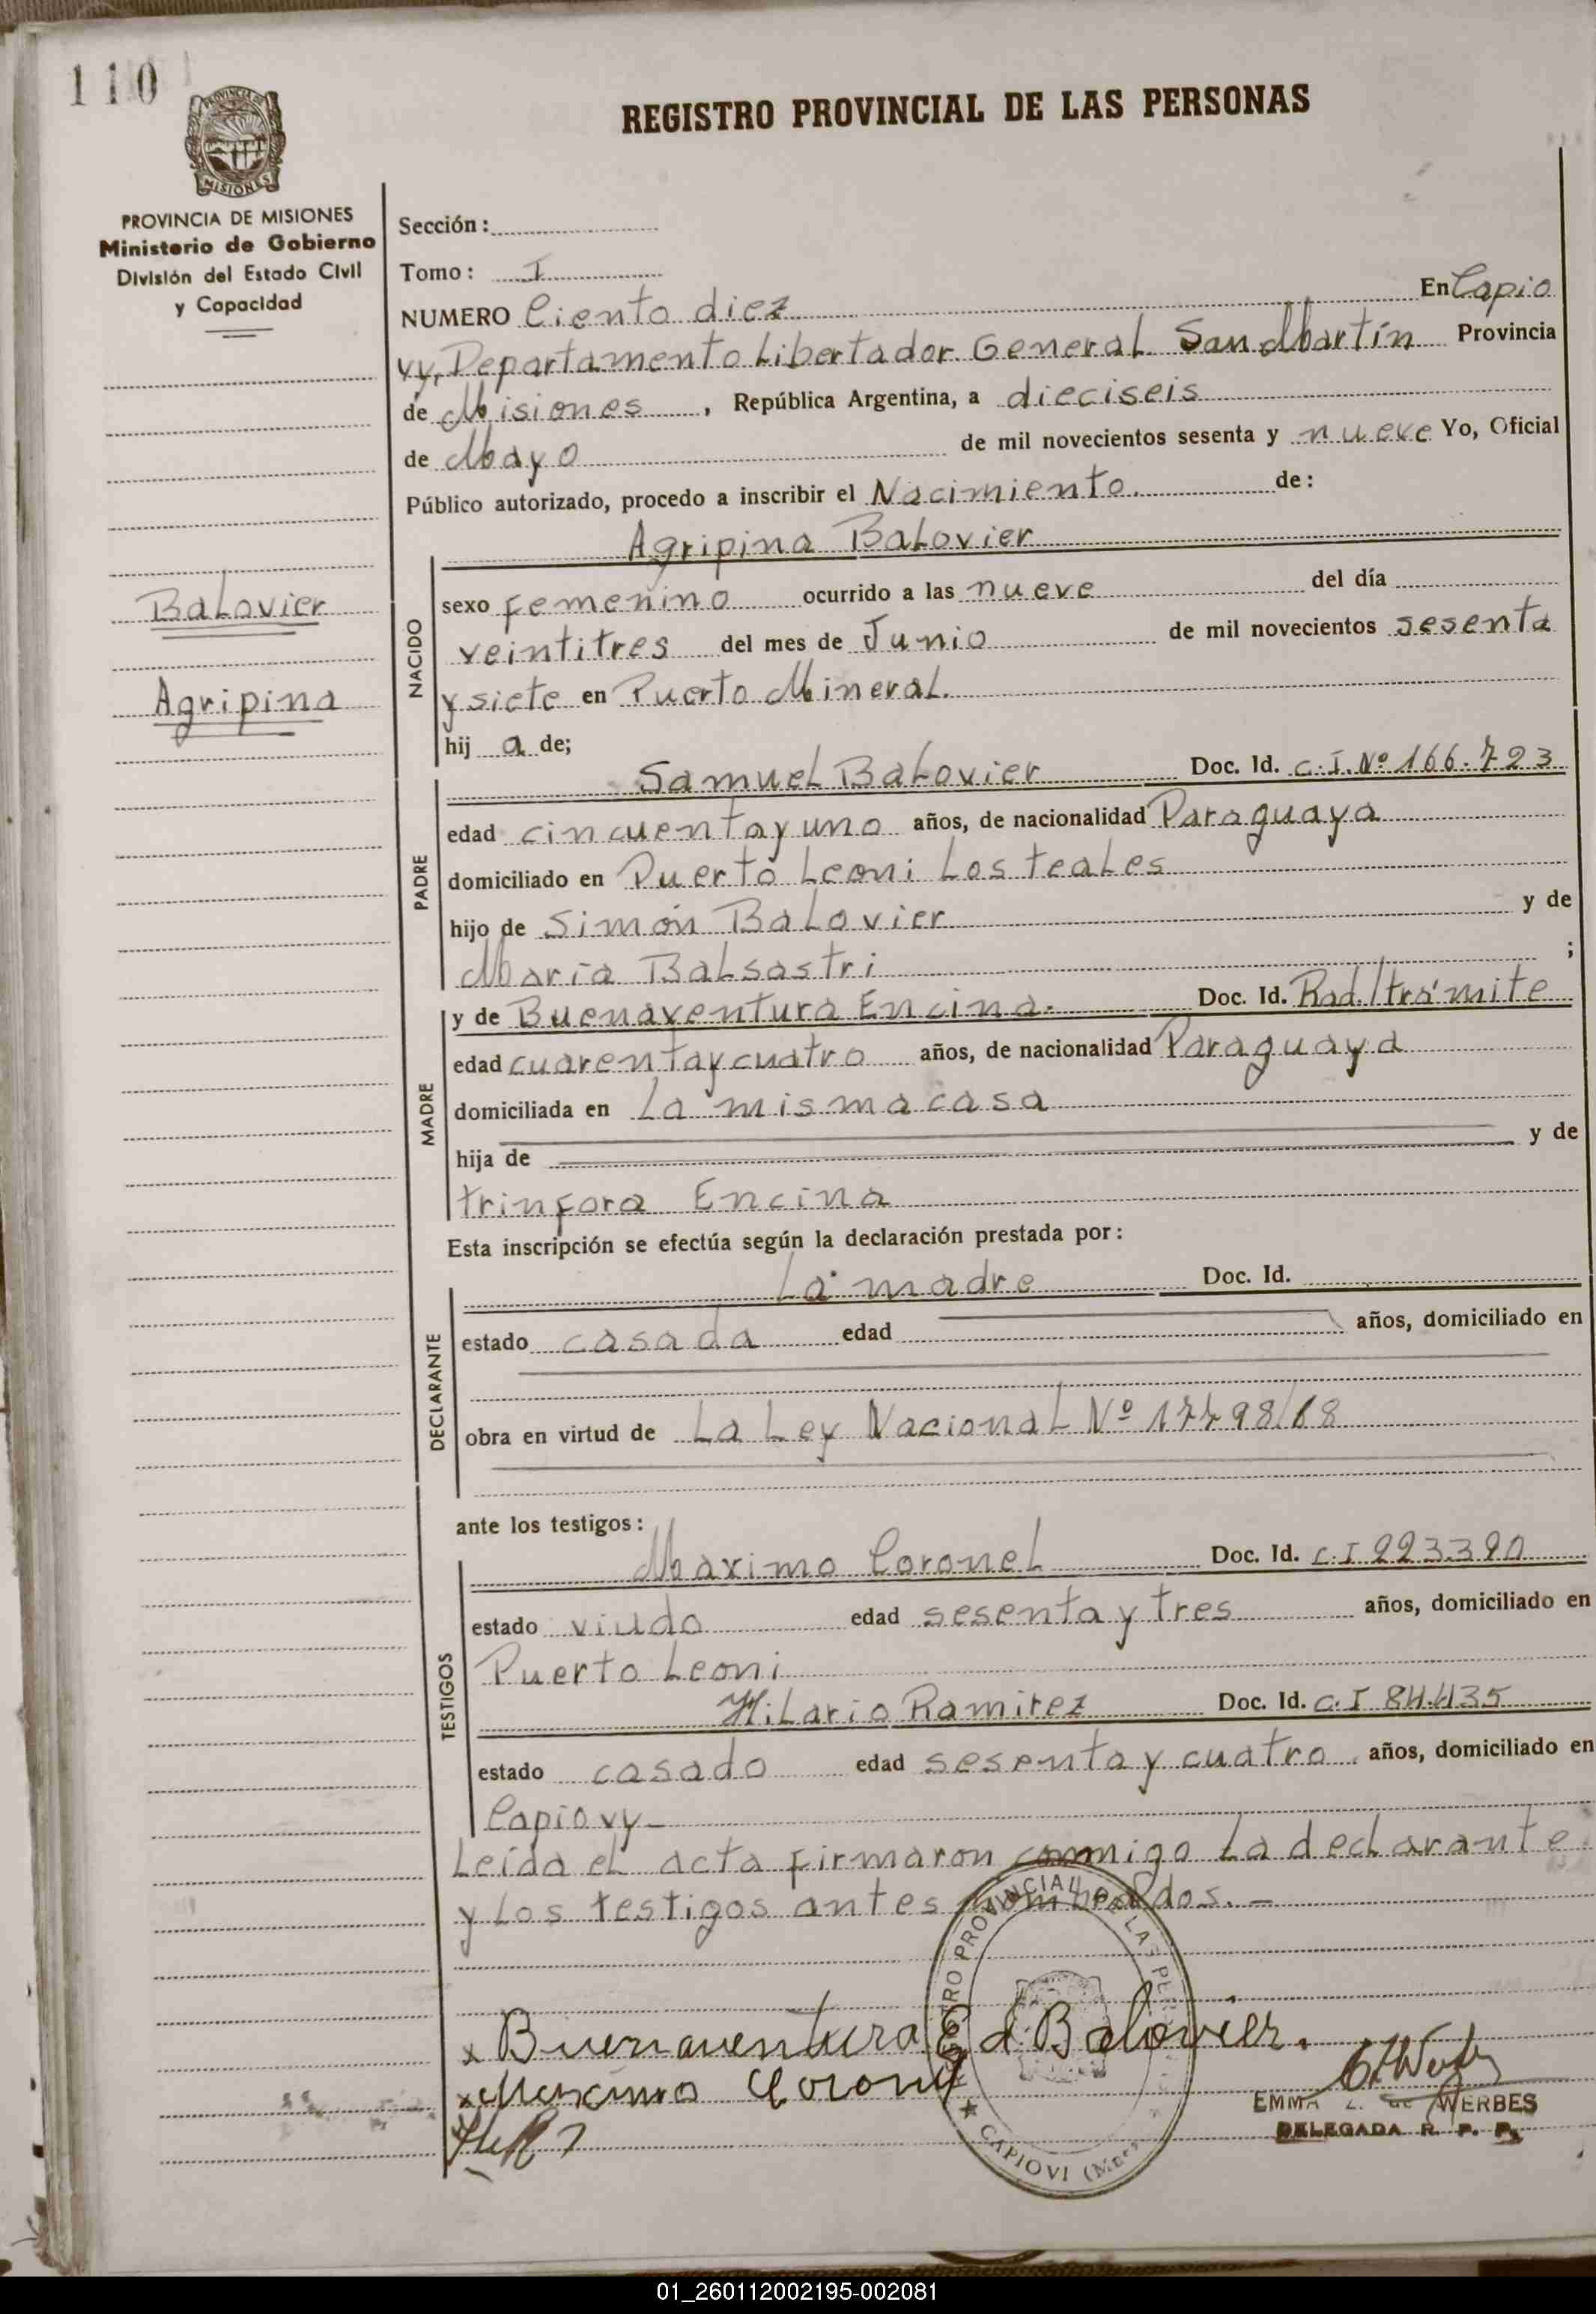 110
PROVINCIA DE MISIONES
MISIONES
PROVINCIA DE MISIONES
Ministerio de Gobierno
División del Estado Civil
y Capacidad
REGISTRO PROVINCIAL DE LAS PERSONAS
Sección:
Tomo: I
NUMERO Ciento diez En Capio
vy, Departamento Libertador General San Martín Provincia
de Misiones, República Argentina, a dieciseis
de Mayo de mil novecientos sesenta y nueve Yo, Oficial
Público autorizado, procedo a inscribir el Nacimiento. de:
Balovier
Agripina
NACIDO
Agripina Balovier
sexo femenino ocurrido a las nueve del día
veintitres del mes de Junio de mil novecientos sesenta
y siete en Puerto Mineral.
hij a de;
PADRE
Samuel Balovier Doc. Id. C.I.Nº 166.723
edad cincuenta y uno años, de nacionalidad Paraguaya
domiciliado en Puerto Leoni Los teales
hijo de Simón Balovier y de
María Balsastri ;
MADRE
y de Buenaventura Encina. Doc. Id. Rad/trámite
edad cuarenta y cuatro años, de nacionalidad Paraguaya
domiciliada en La misma casa
hija de y de
trinfora Encina
Esta inscripción se efectúa según la declaración prestada por:
DECLARANTE
La madre Doc. Id.
estado casada edad años, domiciliado en
obra en virtud de La Ley Nacional Nº 17798/68
ante los testigos:
TESTIGOS
Maximo Coronel Doc. Id. C.I 223.390
estado viudo edad sesenta y tres años, domiciliado en
Puerto Leoni
Hilario Ramirez Doc. Id. C.I 84.435
estado casado edad sesenta y cuatro años, domiciliado en
Capiovy-
Leida el acta firmaron conmigo La declarante
y Los testigos antes nombrados.-
Buenaventura E d Balovier.
x Maximo Coronel
REGISTRO PROVINCIAL DE LAS PE
CAPIOVI (Mnes
EMMA Z. de WERBES
DELEGADA R. P. P.
01_260112002195-002081